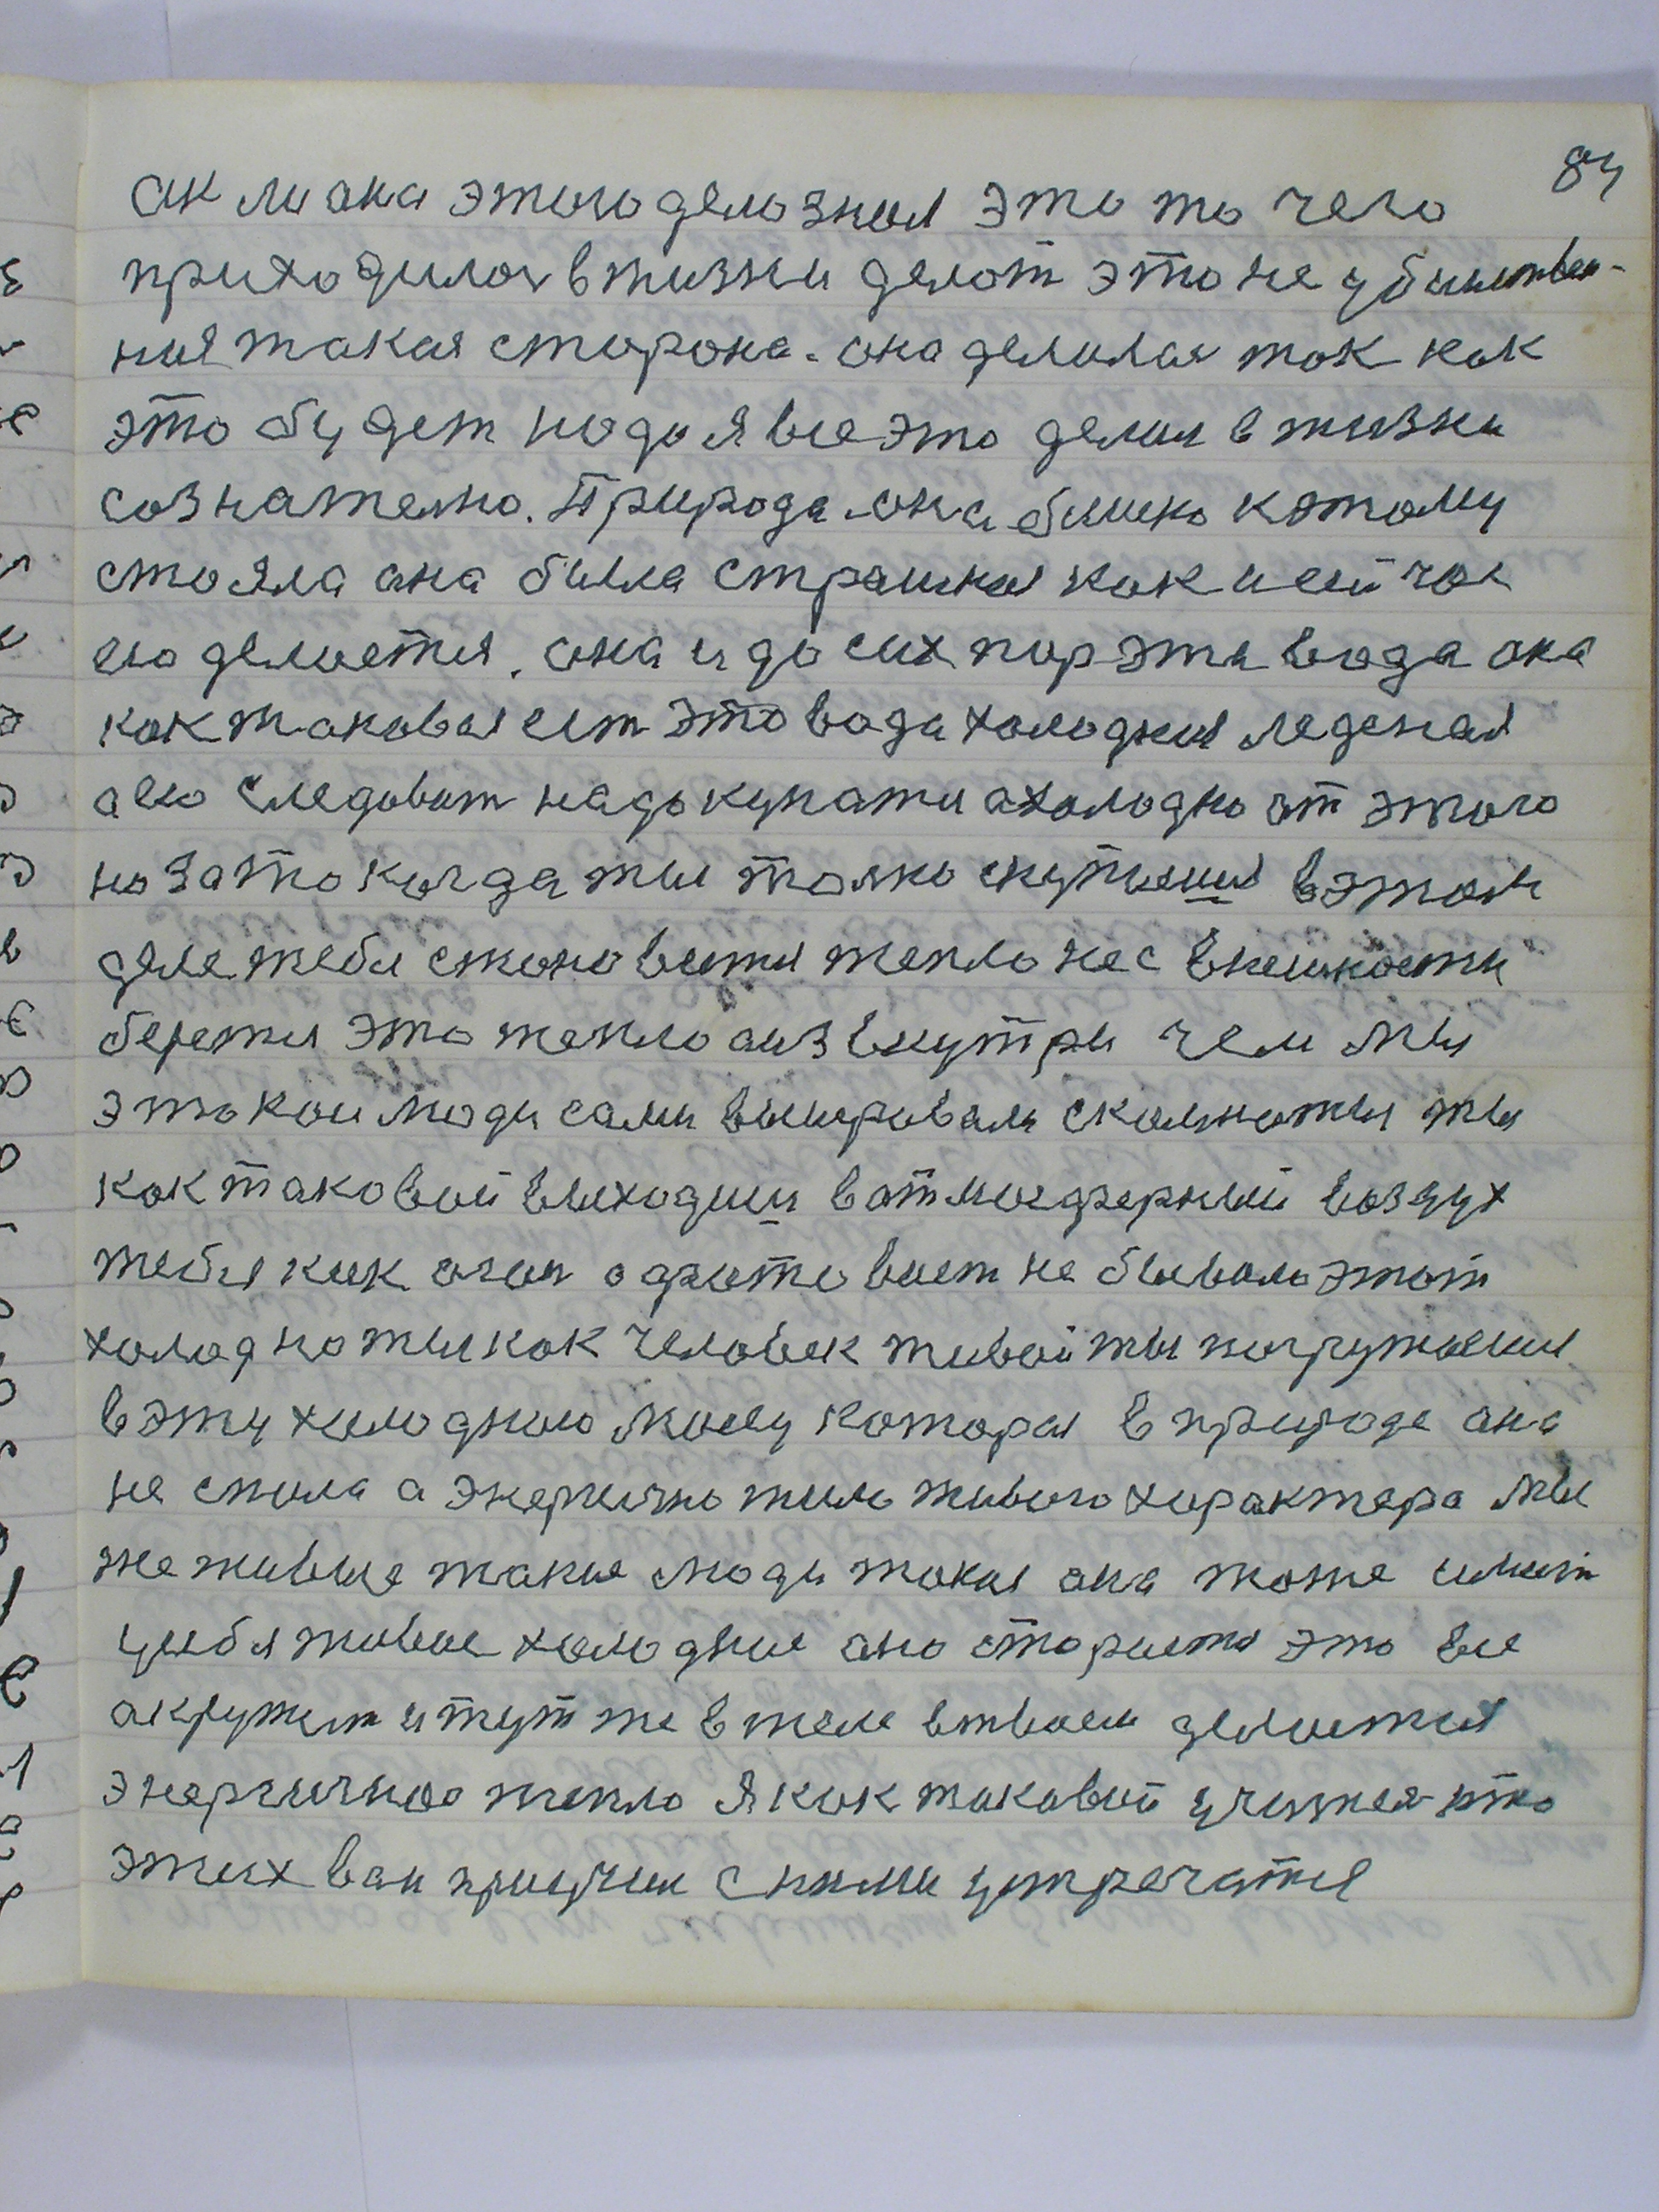 84
ак ли она этого дело знал это то чего
приходилос в жизни делат это не убииствен-
ния такая сторона. она делилас так как
это будет надо я все это делал в жизни
сознателно. Природа она близко к этому
стояла она была страшная как и сейчас
его делается. она и до сих пор эта вода она
как таковая ест это вода холодная леденая
а ею следоват надо купатися холодно от этого
но зато когда ты толко скупаешия в этом
деле тебя становится тепло не с внешности
берется это тепло а из внутри чем мы
это кои люди сами
как таковой выходиш в атмосферный воздух
тебя как огон одхватывает не бывало этот
холод но ты как человек живой ты погружаешия
в эту холодную массу которая в природе она
не спала а энергично тило живого характера мы
же живые такие люди такая она тоже имеит
у себя живые холодние она старается это все
акружит и тут же в теле в твоем делается
энергичное тепло я как таковой учится што
этих вам приучил с ними устречатся